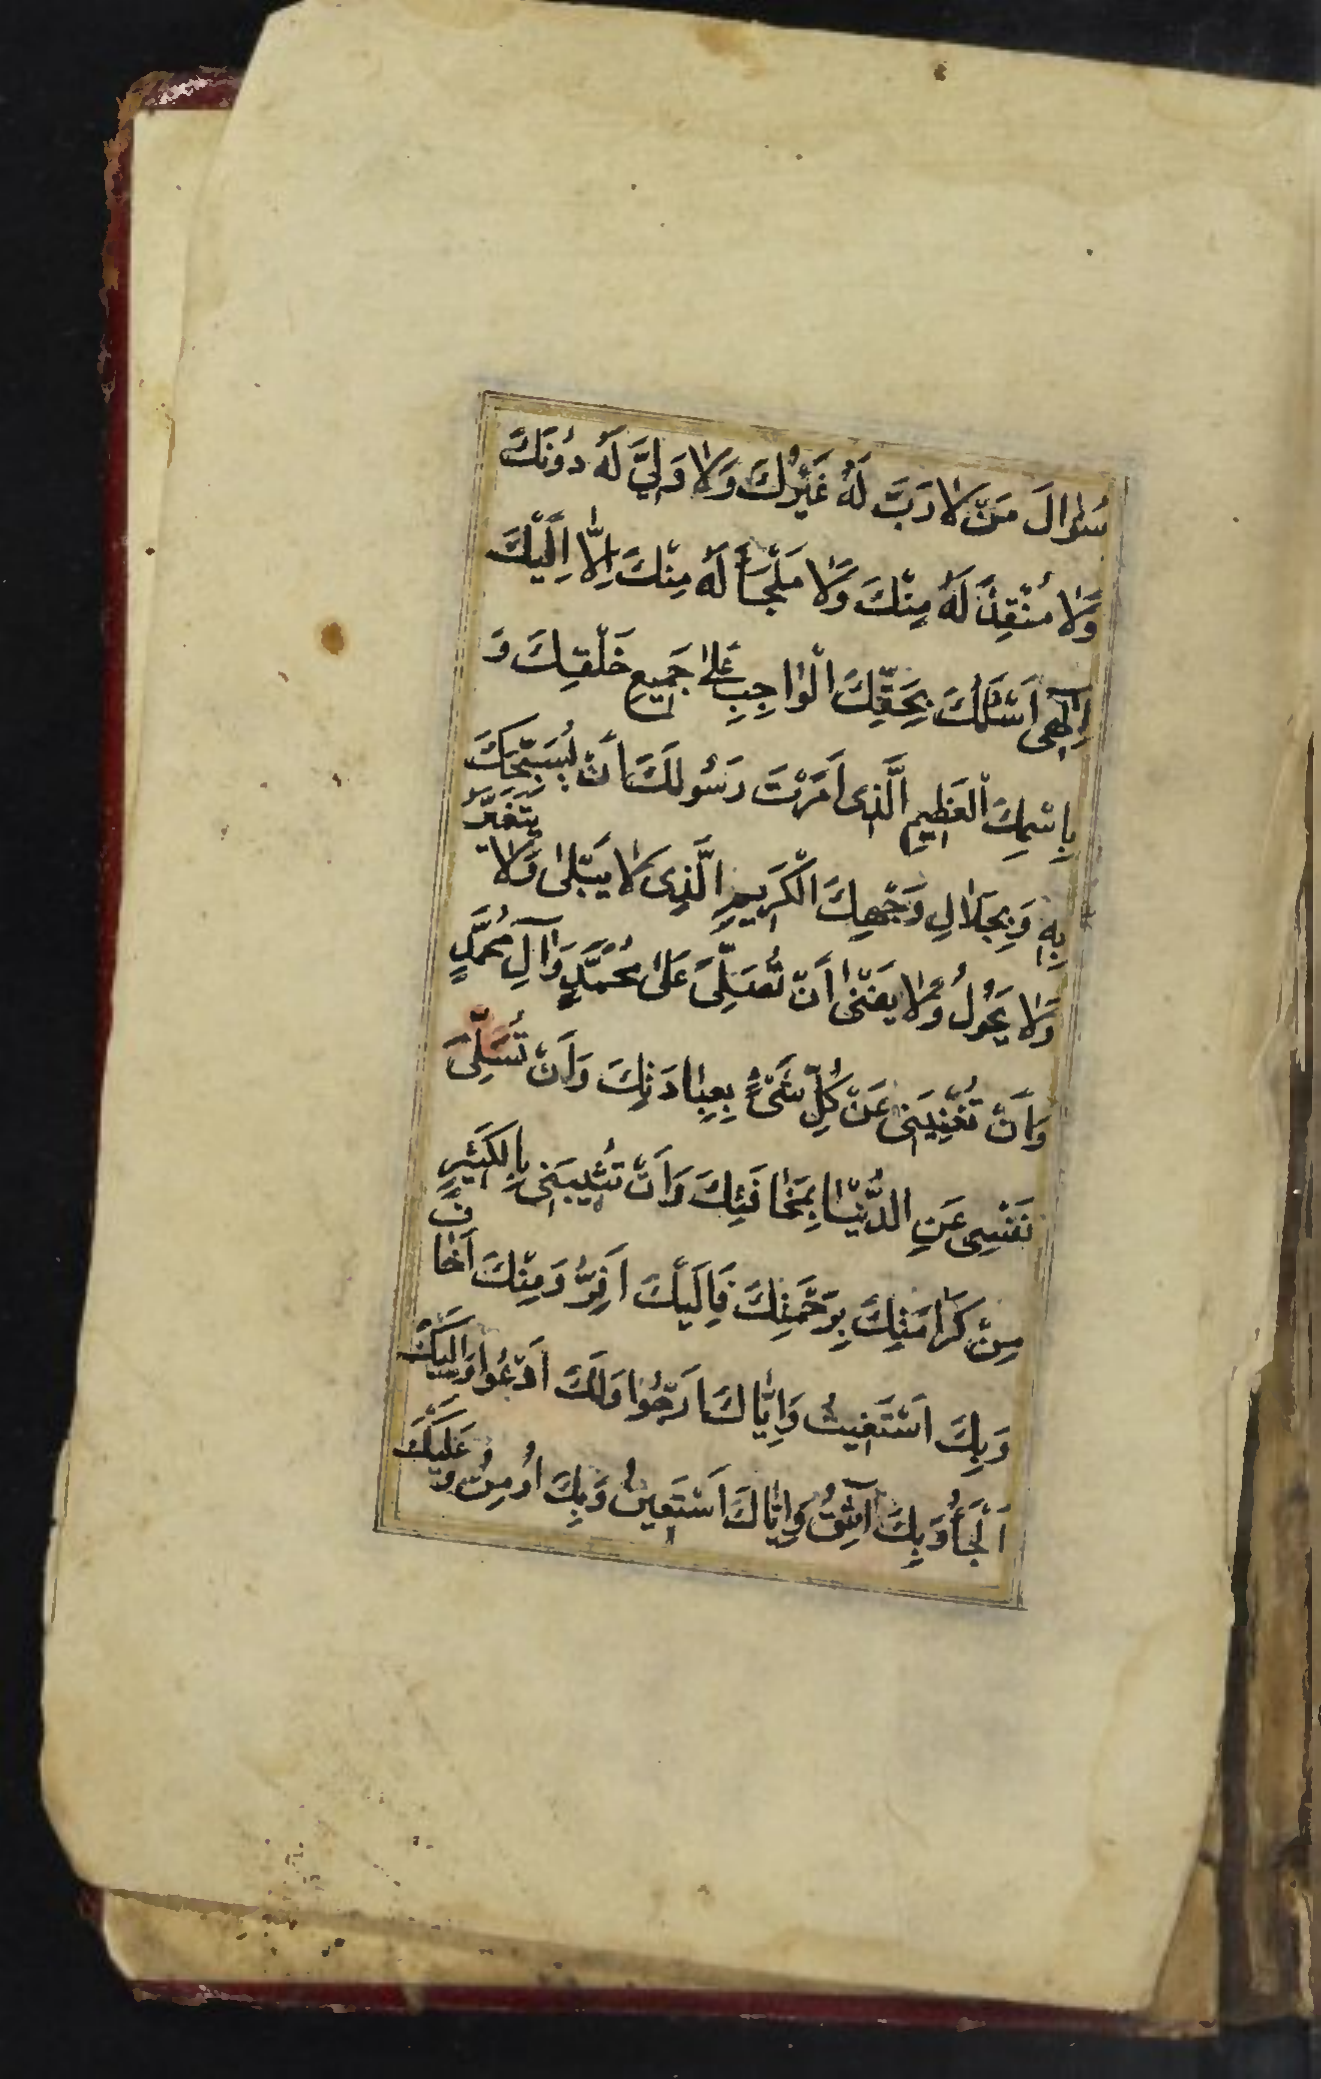 سُؤٰالَ مَنْ لاٰ رَبَّ لَهُ غَيْرُكَ وَلاٰ وَلِيَّ لَهُ دُونَكَ
وَلاٰ مُنْقِذَ لَهُ مِنْكَ وَلاٰ مَلْجَأَ لَهُ مِنْكَ اِلّٰا اِلَيْكَ
اِلٓهى اَسْئَلُكَ بِحَقِّكَ الْوٰاجِبِ عَلىٰ جَميعِ خَلْقِكَ وَ
بِاسْمِكَ الْعَظيمِ الَّذى اَمَرْتَ رَسُولَكَ اَنْ يُسَبِّحَكَ
بِهِ وَبِجَلاٰلِ وَجْهِكَ الْكَريمِ الَّذِى لاٰ يَبْلىٰ وَلاٰ يَتَغَيَّرُ
وَلاٰ يَحُولُ وَلاٰ يَفْنىٰ اَنْ تُصَلِّىَ عَلىٰ مُحَمَّدٍ وَآلِ مُحَمَّدٍ
وَاَنْ تُغْنِيَنى عَنْ كُلِّ شَىْءٍ بِعِبٰادَتِكَ وَاَنْ تُسَلِّىَ
نَفْسِى عَنِ الدُّنْيٰا بِمَخٰافَتِكَ وَاَنْ تُثيبَنى بِالْكَثيرِ
مِنْ كَرٰامَتِكَ بِرَحْمَتِكَ فَاِلَيْكَ اَفِرُّ وَمِنْكَ اَخٰافُ
وَبِكَ اَسْتَغيثُ وَاِيّٰاكَ اَرْجُوا وَلَكَ اَدْعُوا وَاِلَيْكَ
اَلْجَأُ وَبِكَ آثِقُ وَاِيّٰاكَ اَسْتَعينُ وَبِكَ اُومِنُ وَعَلَيْكَ